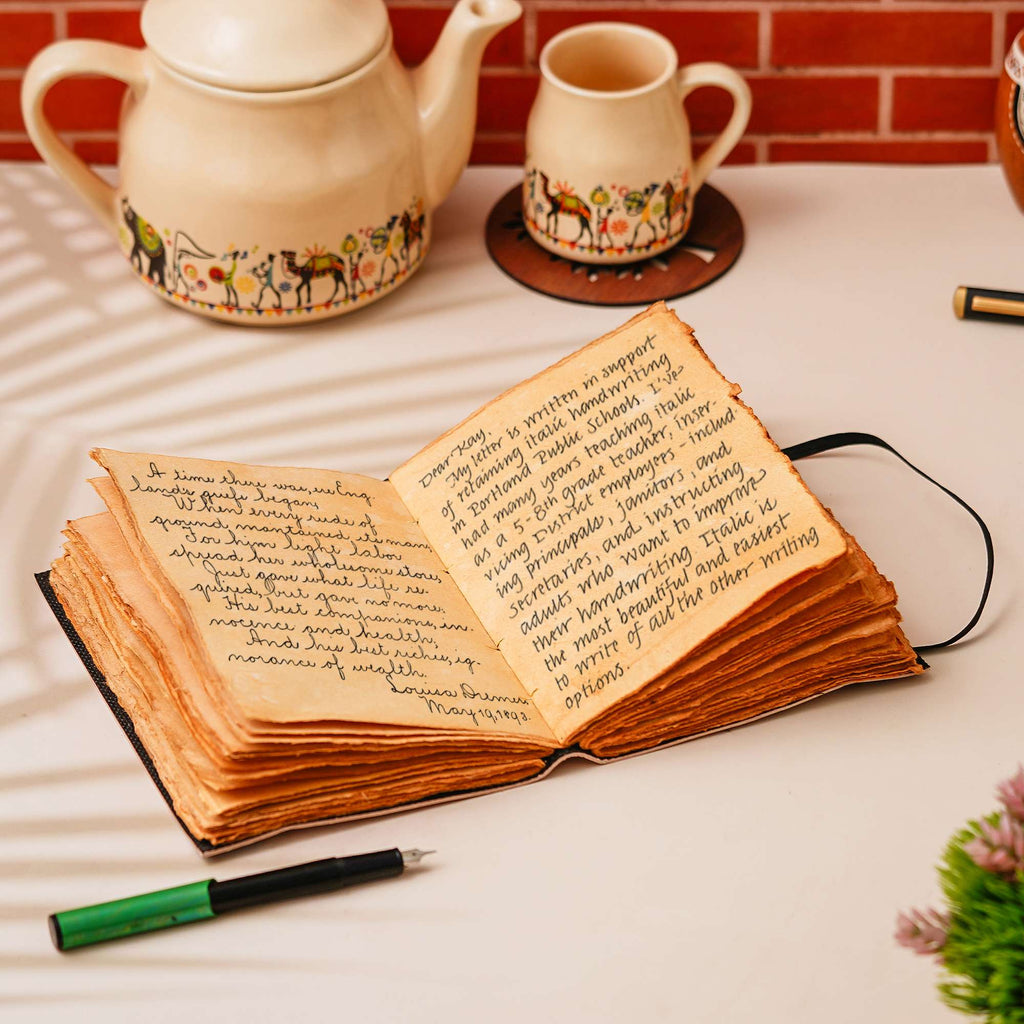 A time there was, ere Eng
land's griefs began,
When every rude of
ground, maintained its man
For him light labor
spread her wholesome store,
Just gave what life re
quired, but gave no more;
His best companions, in
nocence and health,
And his best riches, ig-
norance of wealth.
Louisa
May 19, 1893.
Dear Kay,
My letter is written in support
of retaining italic handwriting
in Portland Public Schools. I've
had many years teaching italic
as a 5-8th grade teacher, inser
vicing District employers - includ-
ing principals, janitors, and
secretaries, and instructing
adults who want to improve
their handwriting. Italic is
the most beautiful and easiest
to write of all the other writing
options.